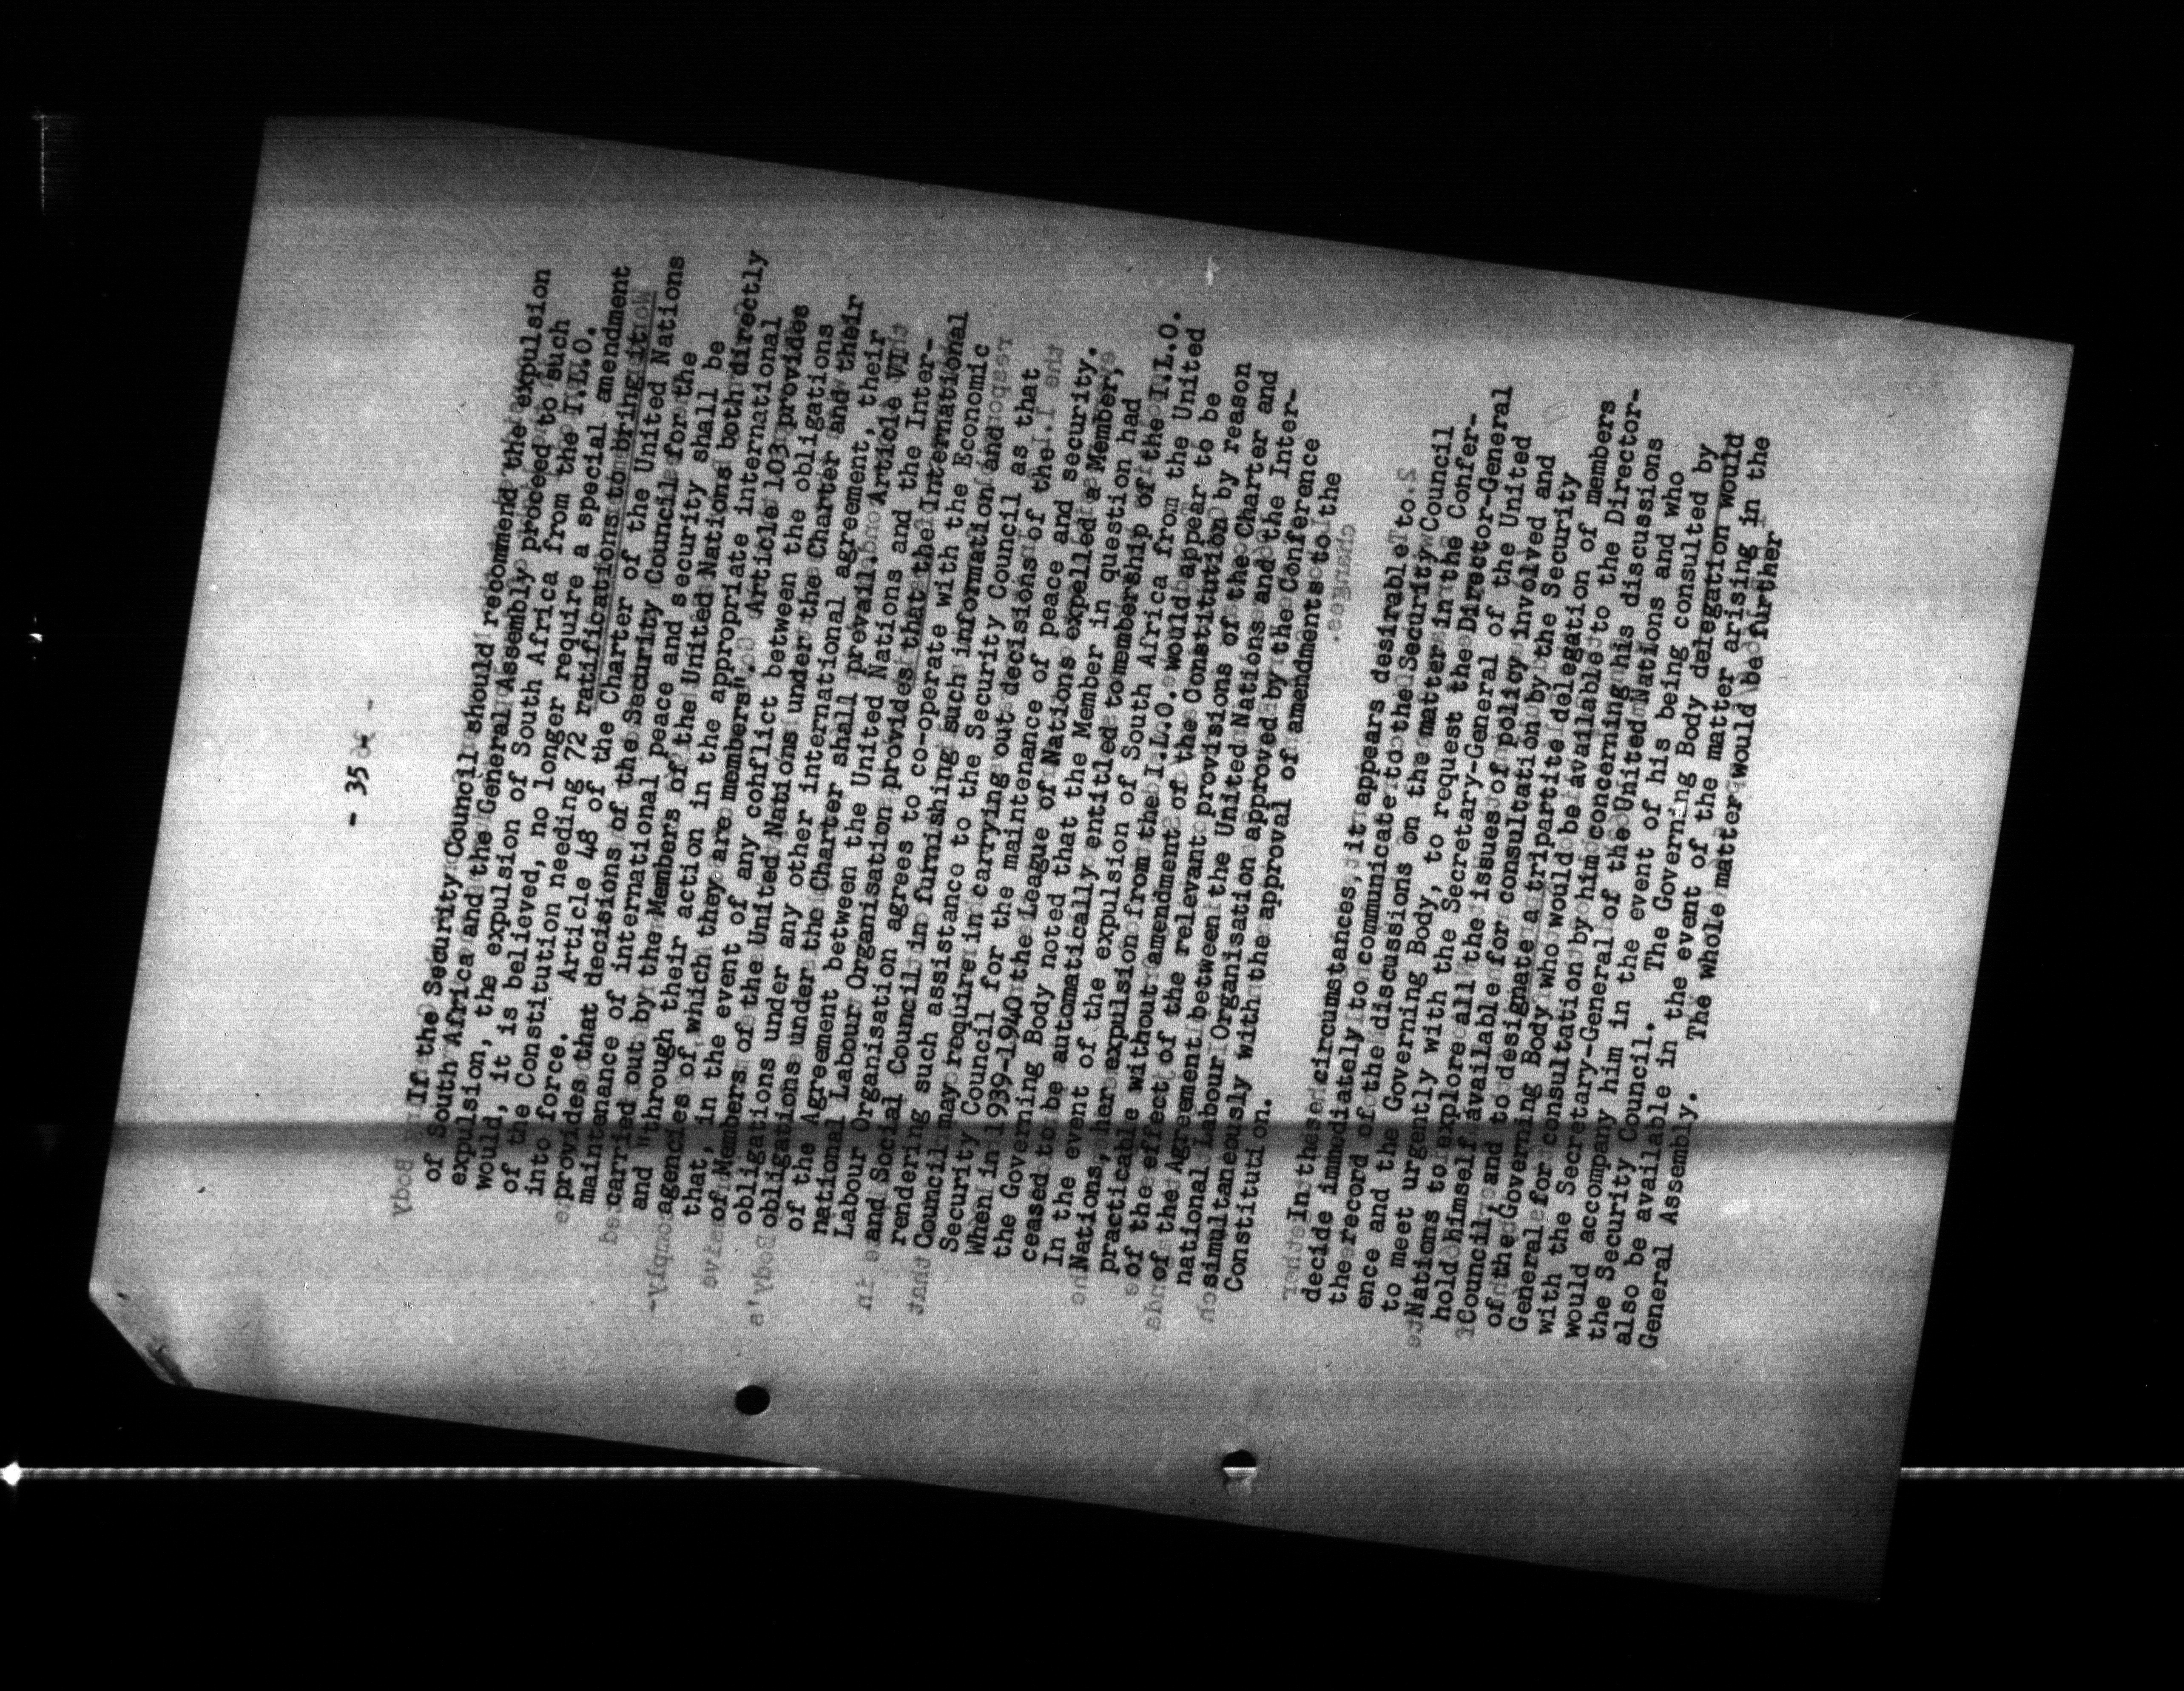 - 35 -
If the Security Council should recommend the expulsion
of South Africa and the General Assembly proceed to such
expulsion, the expulsion of South Africa from the I.L.O.
would, it is believed, no longer require a special amendment
of the Constitution needing 72 ratifications to bring it
into force. Article 48 of the Charter of the United Nations
provides that decisions of the Security Council for the
maintenance of international peace and security shall be
carried out by the Members of the United Nations both directly
and "through their action in the appropriate international
agencies of which they are members". Article 103 provides
that, in the event of any conflict between the obligations
of Members of the United Nations under the Charter and their
obligations under any other international agreement, their
obligations under the Charter shall prevail. Article VI
of the Agreement between the United Nations and the Inter-
national Labour Organisation provides that the International
Labour Organisation agrees to co-operate with the Economic
and Social Council in furnishing such information and
rendering such assistance to the Security Council as that
Council may require in carrying out decisions of the
Security Council for the maintenance of peace and security.
When in 1939-1940 the League of Nations expelled a Member,
the Governing Body noted that the Member in question had
ceased to be automatically entitled to membership of the I.L.O.
In the event of the expulsion of South Africa from the United
Nations, her expulsion from the I.L.O. would appear to be
practicable without amendment of the Constitution by reason
of the effect of the relevant provisions of the Charter and
of the Agreement between the United Nations and the Inter-
national Labour Organisation approved by the Conference
simultaneously with the approval of amendments to the
Constitution.
In these circumstances, it appears desirable to
decide immediately to communicate to the Security Council
the record of the discussions on the matter in the Confer-
ence and the Governing Body, to request the Director-General
to meet urgently with the Secretary-General of the United
Nations to explore all the issues of policy involved and
hold himself available for consultation by the Security
Council, and to designate a tripartite delegation of members
of the Governing Body who would be available to the Director-
General for consultation by him concerning his discussions
with the Secretary-General of the United Nations and who
would accompany him in the event of his being consulted by
the Security Council. The Governing Body delegation would
also be available in the event of the matter arising in the
General Assembly. The whole matter would be further